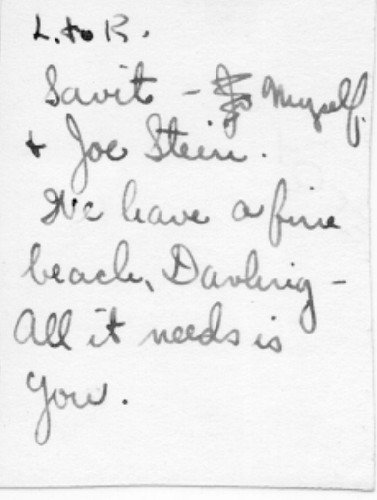 L. to R.
Savit - Myself,
+ Joe Stein.
We have a fine
beach, Darling -
All it needs is
you.